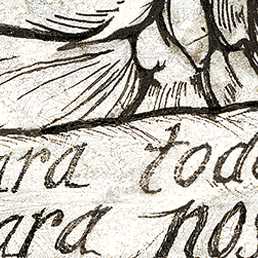 ara todo
ara nos